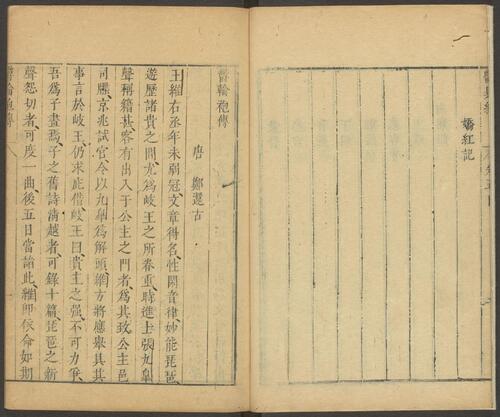 嬌紅記
鬱輪袍傳
唐 鄭還古
王維右丞年未弱冠文章得名性閑音律妙能琵琶
遊歷諸貴之間尤爲岐王之所眷重時進士張九臯
聲稱籍甚客有出入于公主之門者爲其致公主邑
司牒京兆試官令以九臯爲解頭維方將應舉具其
事言於岐王仍求庇借岐王曰貴主之强不可力爭
吾爲子畫焉子之舊詩清越者可錄十篇琵琶之新
聲怨切者可度一曲後五日當詣此維卽依命如期
鬱輪袍傳